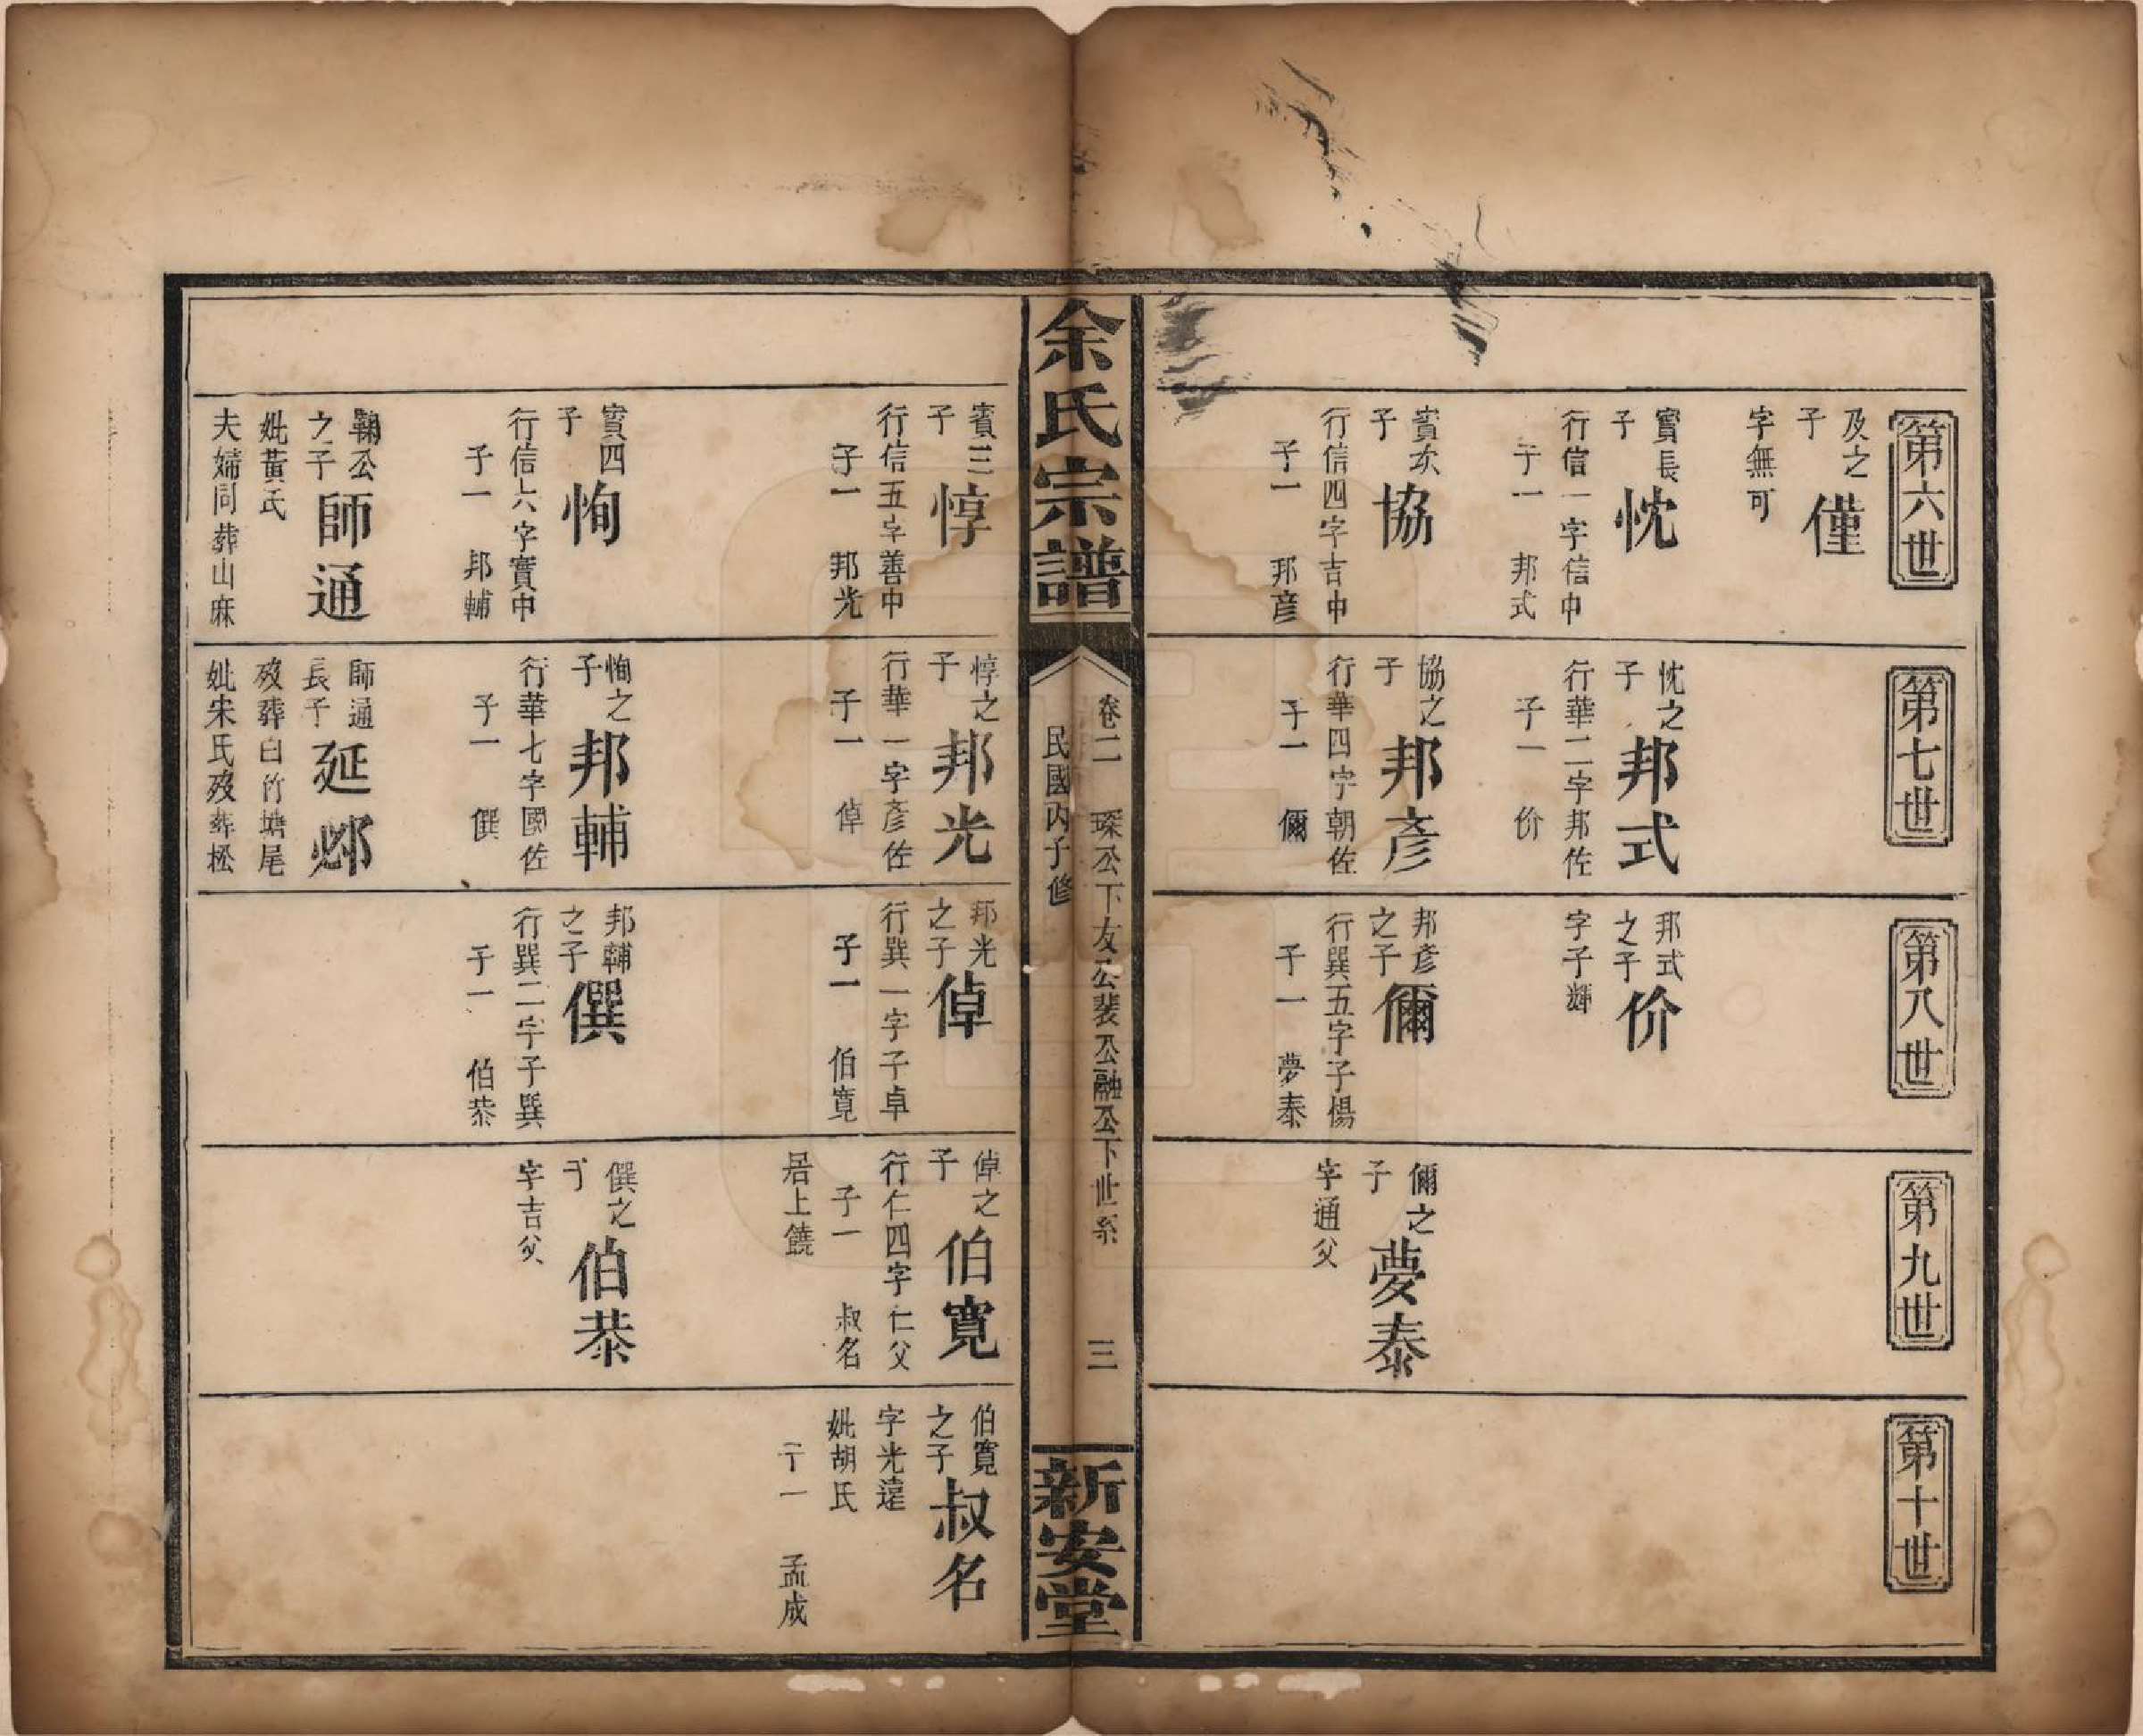 第六世
及之
子
僅
字無可
賓長
子
忱
行信一字信中
子一 邦式
賓次
子
協
行信四字吉中
子一 邦彦
第七世
忱之
子
邦式
行華二字邦佐
子一 价
協之
子
邦彥
行華四字朝佐
子一 儞
第八世
邦式
之子
价
字子輝
邦彥
之子
儞
行巽五字子偒
子一 夢泰
第九世
儞之
子
夢泰
字通父
第十世
余氏宗譜
卷二 琛公下友公裴公融公下世系 三
民國丙子修
新安堂
賓三
子
惇
行信五字善中
子一 邦光
賓四
子
恂
行信六字賓中
子一 邦輔
鞠公
之子
師通
妣黃氏
夫婦同葬山麻
惇之
子
邦光
行華一字彥佐
子一 倬
恂之
子
邦輔
行華七字國佐
子一 僎
師通
長子
延邲
歿葬白竹塘尾
妣宋氏歿葬松
邦光
之子
倬
行巽一字子卓
子一 伯寬
邦輔
之子
僎
行巽二字子巽
子一 伯恭
倬之
子
伯寬
行仁四字仁父
子一 叔名
居上饒
僎之
子
伯恭
字吉父
伯寬
之子
叔名
字光遠
妣胡氏
子一 孟成